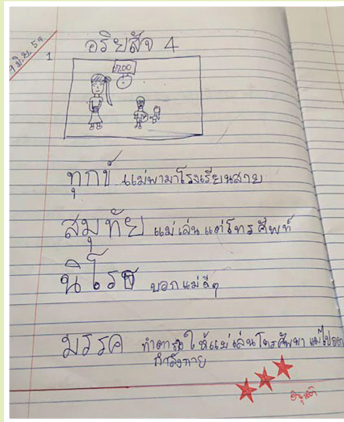 7 มิ.ย. 59
1
อริยสัจ 4
ทุกข์ แม่พามาโรงเรียนสาย
สมุทัย แม่เล่นแต่โทรศัพท์
นิโรธ บอกแม่ดีๆ
มรรค ให้แม่เล่นโทรศัพท์ แม่ไป
กำลังกาย